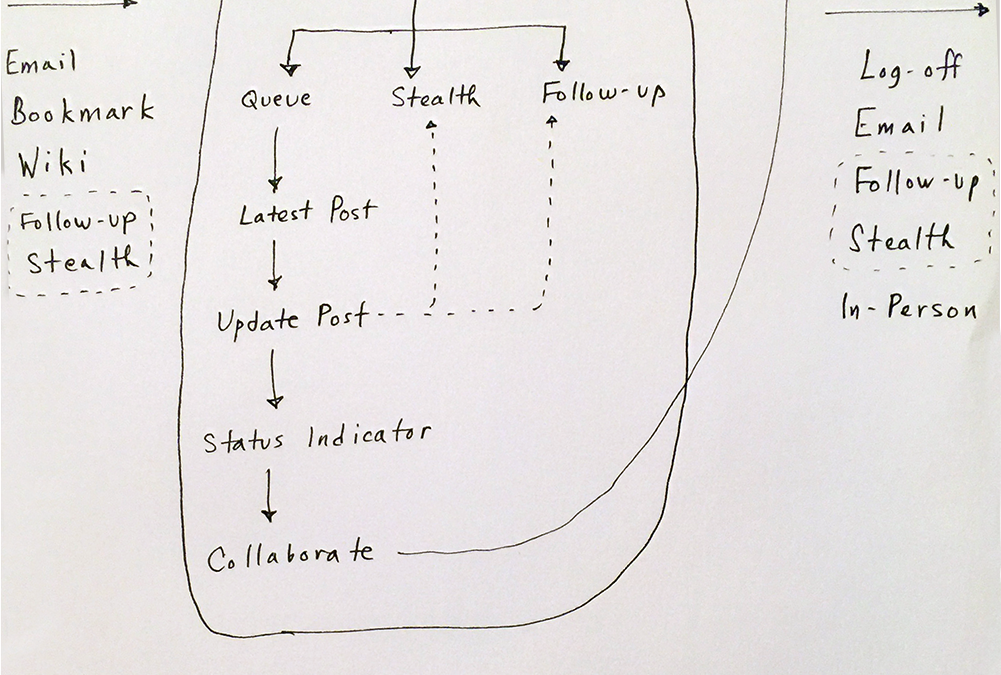 Email
Bookmark
Wiki
Follow-up
Stealth
Queue
Stealth
Follow-up
Latest Post
Update Post
Status Indicator
Collaborate
Log-off
Email
Follow-up
Stealth
In-Person